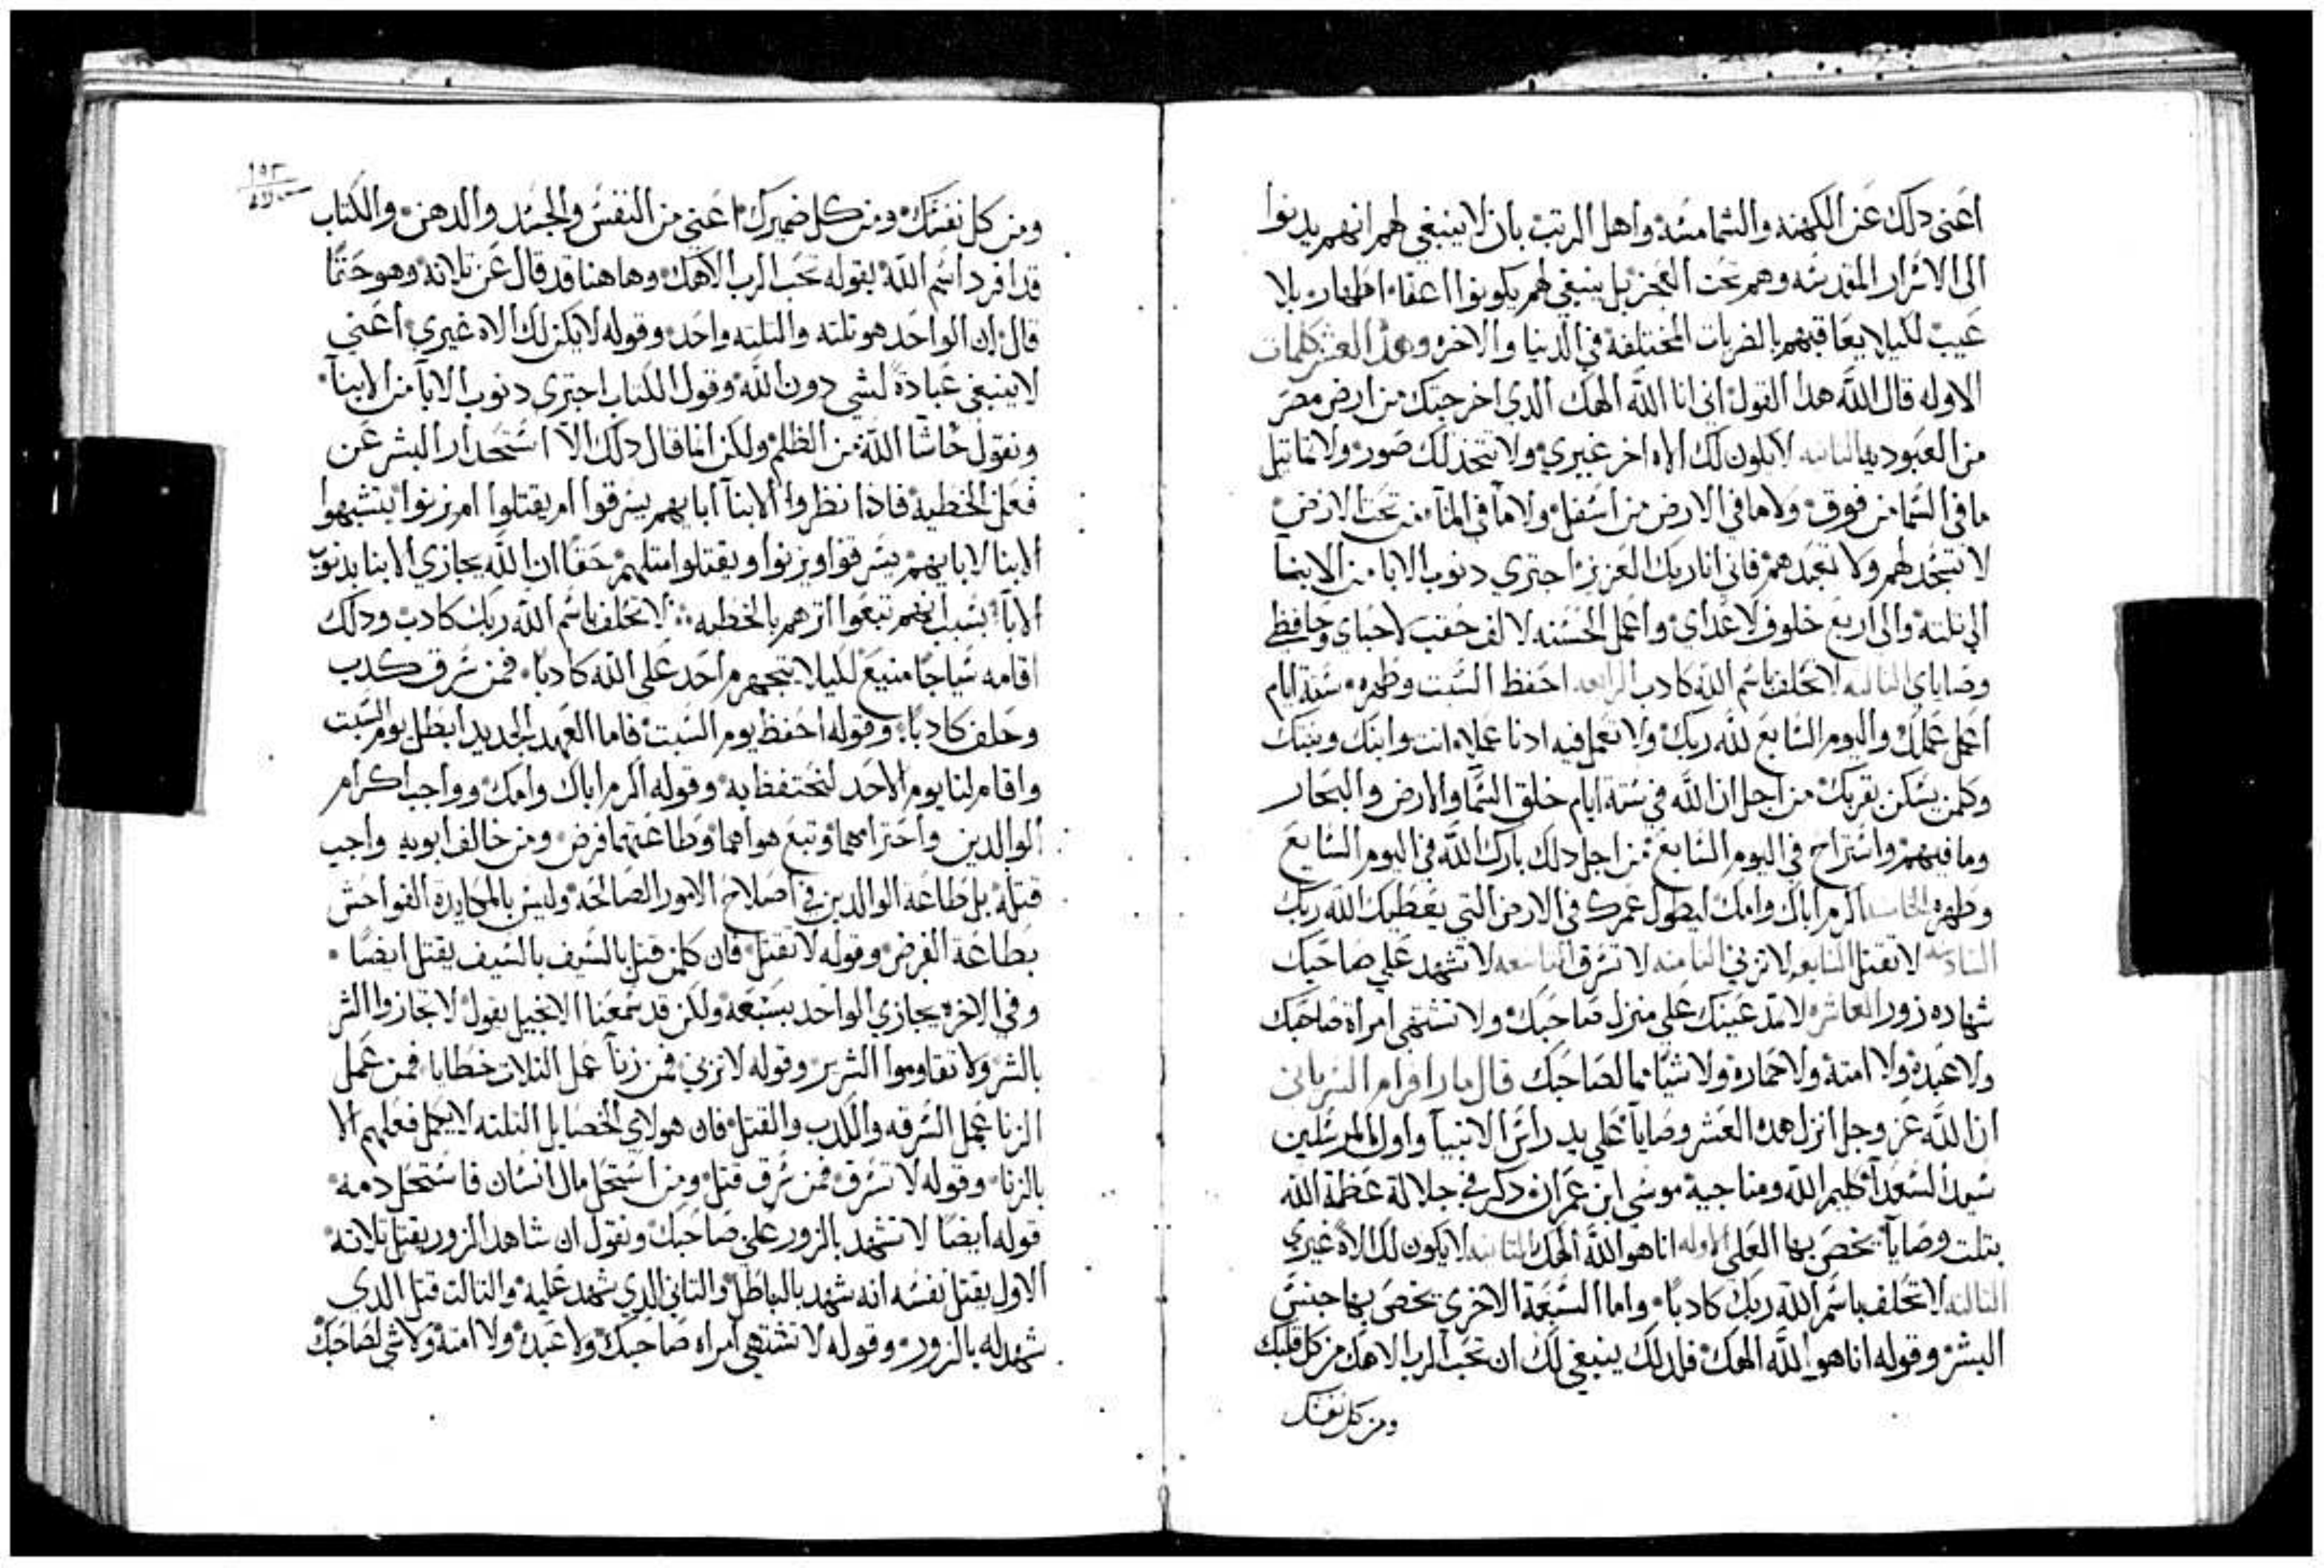 اعني دلك عن الكهنه والشمامسة واهل الرتب بان لا ينبغي لهم انهم يدنوا
الى الاسرار المقدسه وهم تحت العجز بل ينبغي لهم يكونوا اعفاء اطهار بلا
عيب لكيلا يعاقبهم بالضربات المختلفة في الدنيا والاخره وهدا العشر كلمات
الاوله قال الله هدا القول اني انا الله الهك الدي اخرجتك من ارض مصر
من العبوديه الثانيه لا يكون لك الاه اخر غيري ولا تتخد لك صور ولا تماتيل
ما في السما من فوق ولا ما في الارض من اسفل ولا ما في المآء من تحت الارض
لا تسجد لهم ولا تعبدهم فاني انا ربك العزيز اجتري دنوب الابا من الابنا
الى تلته والى اربع خلوف لاعداي واعمل الحسنه لالف حقب لاحباي وحافظي
وصاياي التالته لا تحلف باسم الله كادب الرابعه احفظ السبت وطهره ستة ايام
اعمل عملك واليوم السابع لله ربك ولا تعمل فيه ادنا عملا انت وابنك وبنتك
وكلمن يسكن بقربك من اجل ان الله في ستة ايام خلق السما والارض والبحار
وما فيهم واستراح في اليوم السابع من اجل دلك بارك الله في اليوم السابع
وطهره الخامسه اكرم اباك وامك ليطول عمرك في الارض التي يعطيك الله ربك
السادسه لا تقتل السابعه لا تزني التامنه لا تسرق التاسعه لا تشهد علي صاحبك
شهاده زور العاشره لا تمد عينك علي منزل صاحبك ولا تشتهي امراة صاحبك
ولا عبده ولا امته ولا حماره ولا شيا مما لصاحبك قال مار افرام السرياني
ان الله عز وجل انزل هده العشر وصايا علي يد راس الانبيآ واول المرسلين
سعد السعدآ كليم الله ومناجيه موسى ابن عمران دكر في جلالة عظمة الله
بتلت وصايآ يخص بها العلي الاوله انا هو الله الهك التانيه لا يكون لك الاه غيري
التالته لا تحلف باسم الله ربك كادبا واما السبعة الاخرى يخص بها جنس
البشر وقوله انا هو الله الهك فلدلك ينبغي لك ان تحب الرب الاهك من كل قلبك
ومن كل نفسك
١٥٣
ومن كل نفسك ومن كل ضميرك اعني من النفس والجسد والدهن والكتاب
قد افرد اسم الله بقوله تحب الرب الاهك وهاهنا قد قال عن تلاته وهو حتما
قال ان الواحد هو تلته والتلته واحد وقوله لا يكن لك الاه غيري اعني
لا ينبغي عبادة لشي دون الله وقول الكتاب اجتري دنوب الابآ من الابنآ
ونقول حاشا الله من الظلم ولكن انما قال دلك الا استحدار البشر عن
فعل الخطية فادا نظروا الابنآ ابايهم يسرقوا ام يقتلوا ام يزنوا يتشبهوا
الابنا لابايهم يسرقوا ويزنوا ويقتلوا متلهم حقا ان الله يجازي الابنا بدنوب
الابآ بسبب انهم تبعوا اثرهم بالخطيه لا تحلف باسم الله ربك كادب ودلك
اقامه سياجا منيع لكيلا يتجهرم احد على الله كادبا فمن سرق كدب
وحلف كادبا وقوله احفظ يوم السبت فاما العهد الجديد ابطل يوم السبت
واقام لنا يوم الاحد لنحتفظ به وقوله اكرم اباك وامك وواجب اكرام
الوالدين واحترامهما وتبع هواهما وطاعتهما فرض ومن خالف ابويه واجب
قتله بل طاعة الوالدين في اصلاح الامور الصالحة وليس بالمكابرة الفواحش
بطاعة الفرض وقوله لا تقتل فان كلمن قتل بالسيف بالسيف يقتل ايضا
وفي الاخره يجازي الواحد بسبعة ولكن قد سمعنا الانجيل يقول لا تجازوا الشر
بالشر ولا تقاوموا الشرير وقوله لا تزني فمن زنآ عمل التلات خطايا فمن عمل
الزنا عمل السرقه والكدب والقتل فان هولاي الخصايل التلته لا يكمل فعلهم الا
بالزنا وقوله لا تسرق فمن سرق قتل ومن استحل مال انسان فاستحل دمه
قوله ايضا لا تشهد بالزور علي صاحبك ونقول ان شاهد الزور يقتل تلاته
الاول يقتل نفسه انه شهد بالباطل والتاني الدي شهد عليه والتالت قتل الدي
شهد له بالزور وقوله لا تشتهي امراه صاحبك ولا عبده ولا امته ولا شي لصاحبك